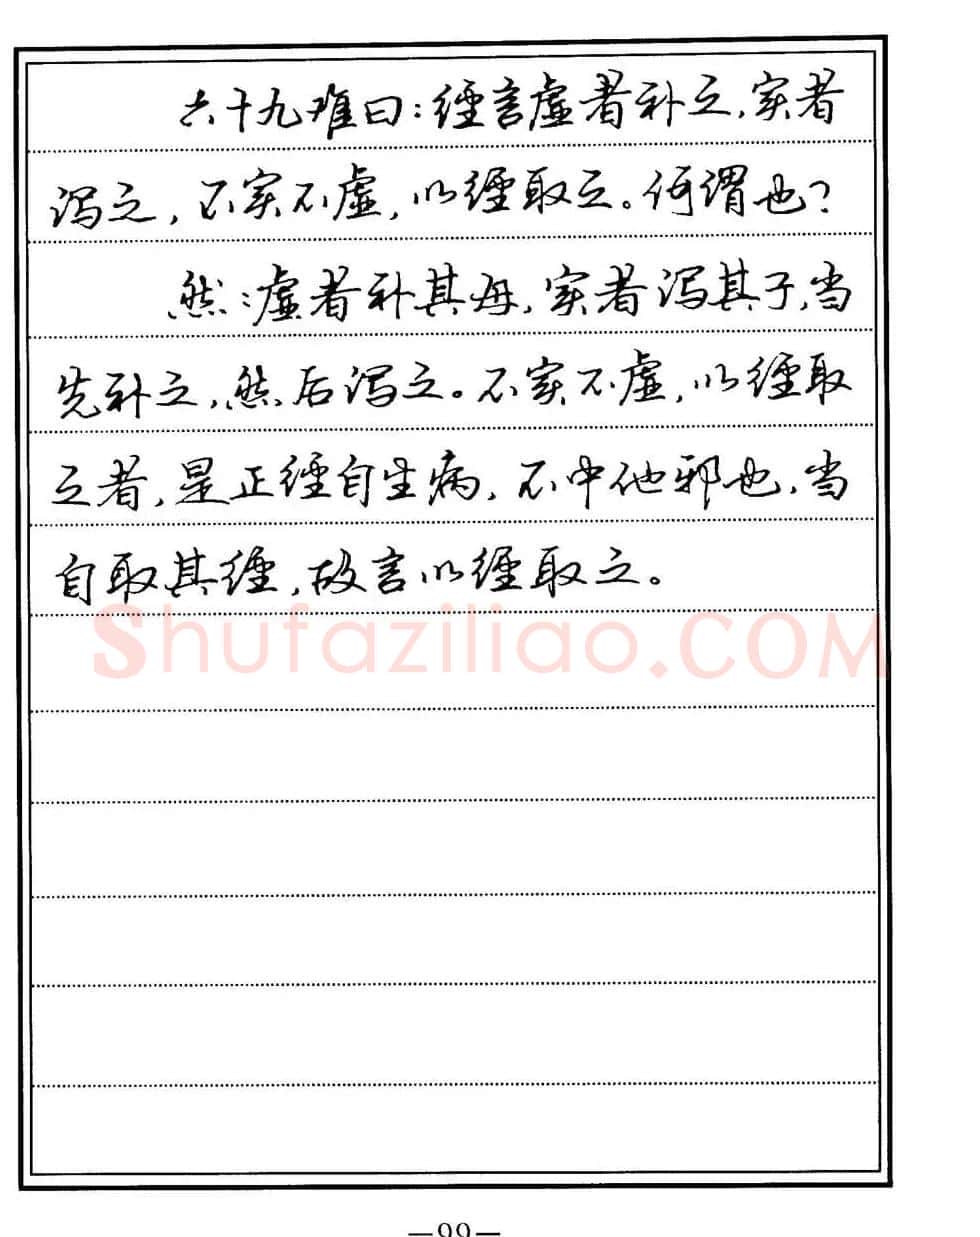 六十九难曰:经言虚者补之,实者
泻之,不实不虚,以经取之。何谓也?
然:虚者补其母,实者泻其子,当
先补之,然后泻之。不实不虚,以经取
之者,是正经自生病,不中他邪也,当
自取其经,故言以经取之。
Shufaziliao.COM
—99—